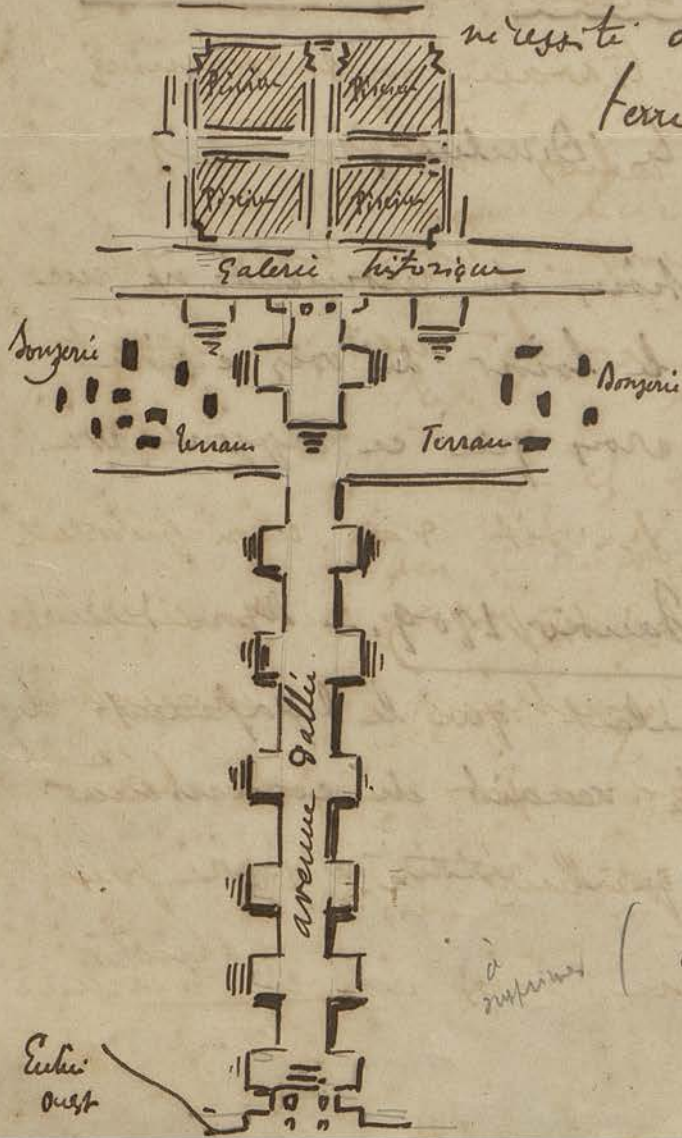 nécessité d
terra
Piscine
Piscine
Piscine
Piscine
Galerie historique
Bonzerie
Bonzerie
Terrain
Terrain
avenue dallée
à
supprimer (
Entrée
ouest